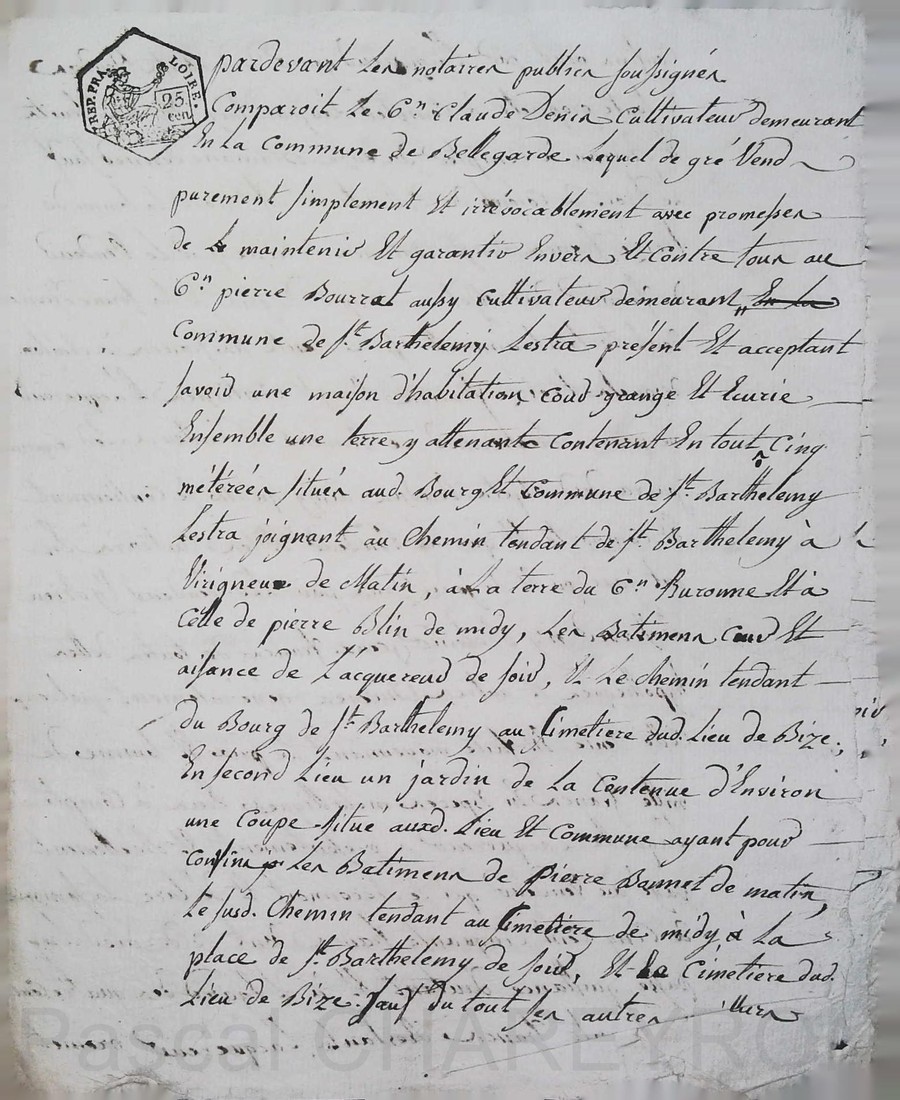 REP. FRA. LOIRE.
25
cen
pardevant Les notaires publics soussignés
Comparoit Le C.en Claude Denis Cultivateur demeurant
En La Commune de Bellegarde Lequel de gré Vend
purement simplement Et irrévocablement avec promesses
de Le maintenir Et garantir Envers Et Contre tous au
C.en pierre Bourrat aussy Cultivateur demeurant, En La
Commune de St. Barthelemy Lestra présent Et acceptant
savoir une maison d'habitation cour grange Et Ecurie
Ensemble une terre y attenante Contenant En tout Cinq
métérées situés aud. Bourg Et Commune de St. Barthelemy
Lestra joignant au Chemin tendant de St. Barthelemy à
Virigneux de Matin, à La terre du C.en Ruronne Et à
Celle de pierre Blin de midy, Les Batimens Cour Et
aisance de L'acquereur de soir, Et Le chemin tendant
du Bourg de St. Barthelemy au Cimetiere dud. Lieu de Bize;
En second Lieu un jardin de La Contenue d'Environ
une Coupe situé auxd. Lieu Et Commune ayant pour
confins Les Batimens de Pierre Bonnet de matin,
Le susd. Chemin tendant au Cimetière de midy, à La
place de St. Barthelemy de soir, Et Le Cimetiere dud.
Lieu de Bize. Sauf du tout ses autres
Pascal CHAREYRON